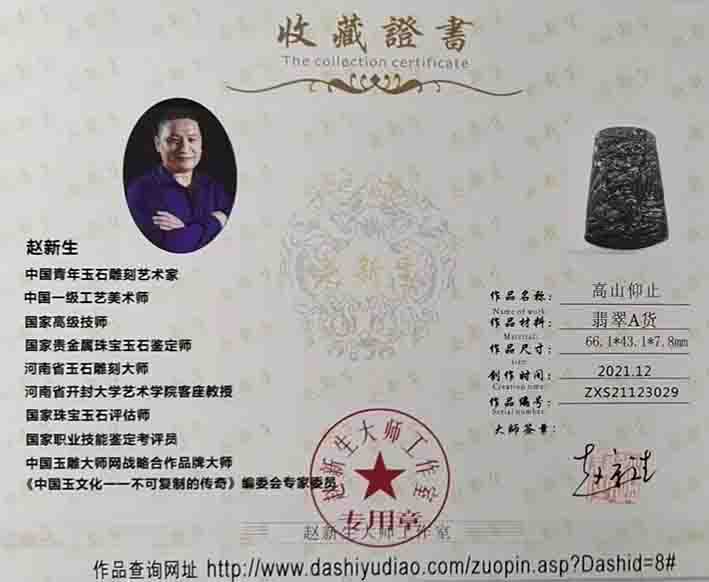 收藏證書
The collection certificate
赵新生
中国青年玉石雕刻艺术家
中国一级工艺美术师
国家高级技师
国家贵金属珠宝玉石鉴定师
河南省玉石雕刻大师
河南省开封大学艺术学院客座教授
国家珠宝玉石评估师
国家职业技能鉴定考评员
中国玉雕大师网战略合作品牌大师
《中国玉文化一一不可复制的传奇》编委会专家委员
赵新生
作品名称： 高山仰止
Name of work:
作品材料： 翡翠A货
Material:
作品尺寸： 66.1*43.1*7.8mm
size:
创作时间： 2021.12
Creation time:
作品编号： ZXS21123029
Serial number:
大师签章：
赵新生
赵新生大师工作室
专用章
赵新生大师工作室
作品查询网址 http://www.dashiyudiao.com/zuopin.asp?Dashid=8#